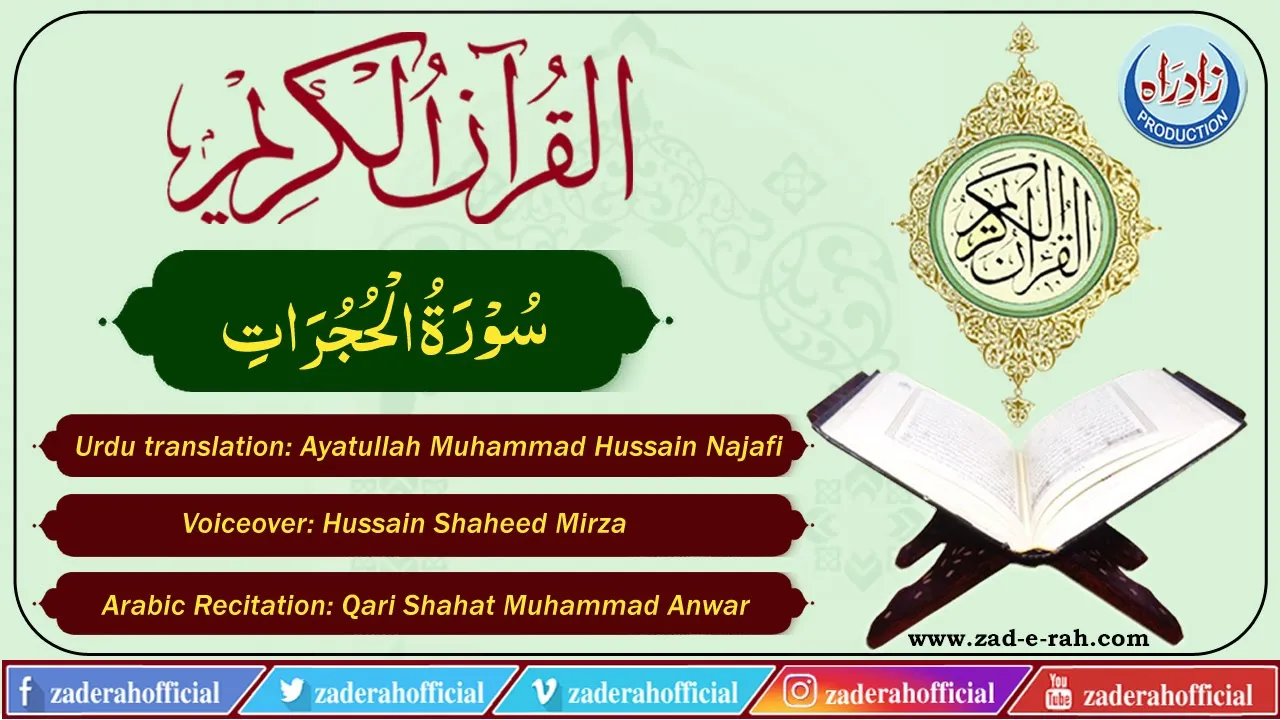 القرآن الكريم
سُوْرَةُ الْحُجُرَاتِ
Urdu translation: Ayatullah Muhammad Hussain Najafi
Voiceover: Hussain Shaheed Mirza
Arabic Recitation: Qari Shahat Muhammad Anwar
زادِ رَاہ
PRODUCTION
القرآن الكريم
www.zad-e-rah.com
f zaderahofficial
zaderahofficial
v zaderahofficial
zaderahofficial
You Tube zaderahofficial